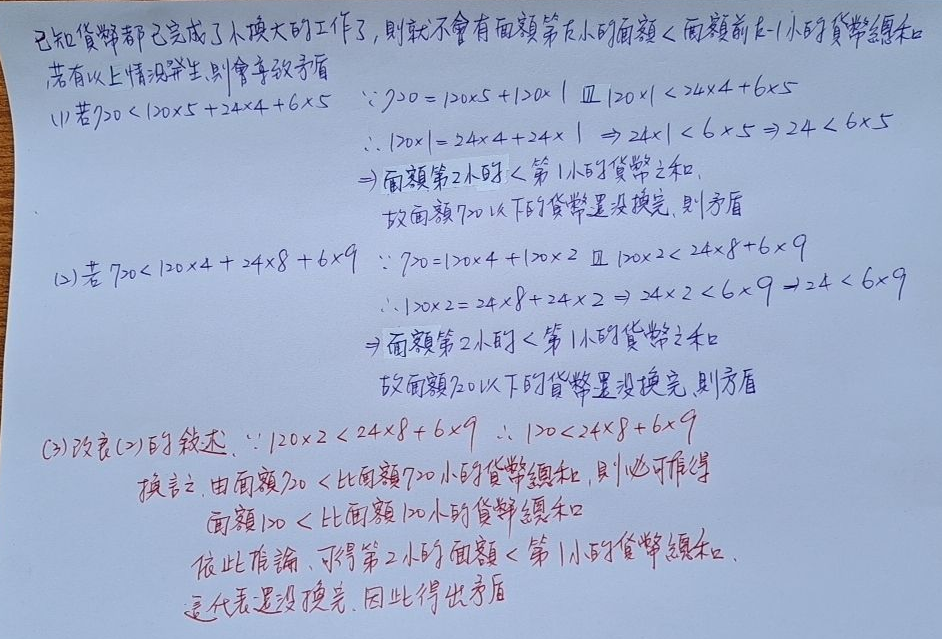 已知貨幣都已完成了小換大的工作了,則就不會有面額第k小的面額<面額前k-1小的貨幣總和
若有以上情況發生,則會導致矛盾
(1)若720<120×5+24×4+6×5 ∵720=120×5+120×1 且120×1<24×4+6×5
∴120×1=24×4+24×1 ⇒24×1<6×5⇒24<6×5
⇒面額第2小的<第1小的貨幣之和,
故面額720以下的貨幣還沒換完,則矛盾
(2)若720<120×4+24×8+6×9 ∵720=120×4+120×2 且120×2<24×8+6×9
∴120×2=24×8+24×2⇒24×2<6×9⇒24<6×9
⇒面額第2小的<第1小的貨幣之和
故面額720以下的貨幣還沒換完,則矛盾
(3)改良(2)的敘述,∵120×2<24×8+6×9 ∴120<24×8+6×9
換言之,由面額720<比面額720小的貨幣總和,則必可推得
面額120<比面額120小的貨幣總和
依此推論,可得第2小的面額<第1小的貨幣總和,
這代表還沒換完,因此得出矛盾